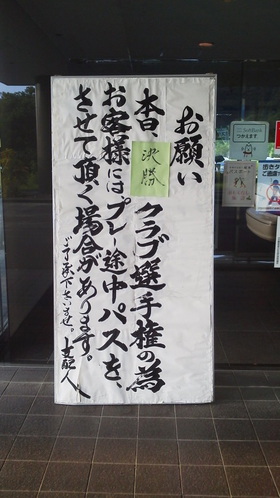 お願い
本日 決勝 クラブ選手権の為
お客様にはプレー途中パスを、
させて頂く場合があります。
ご了承下さいませ。支配人